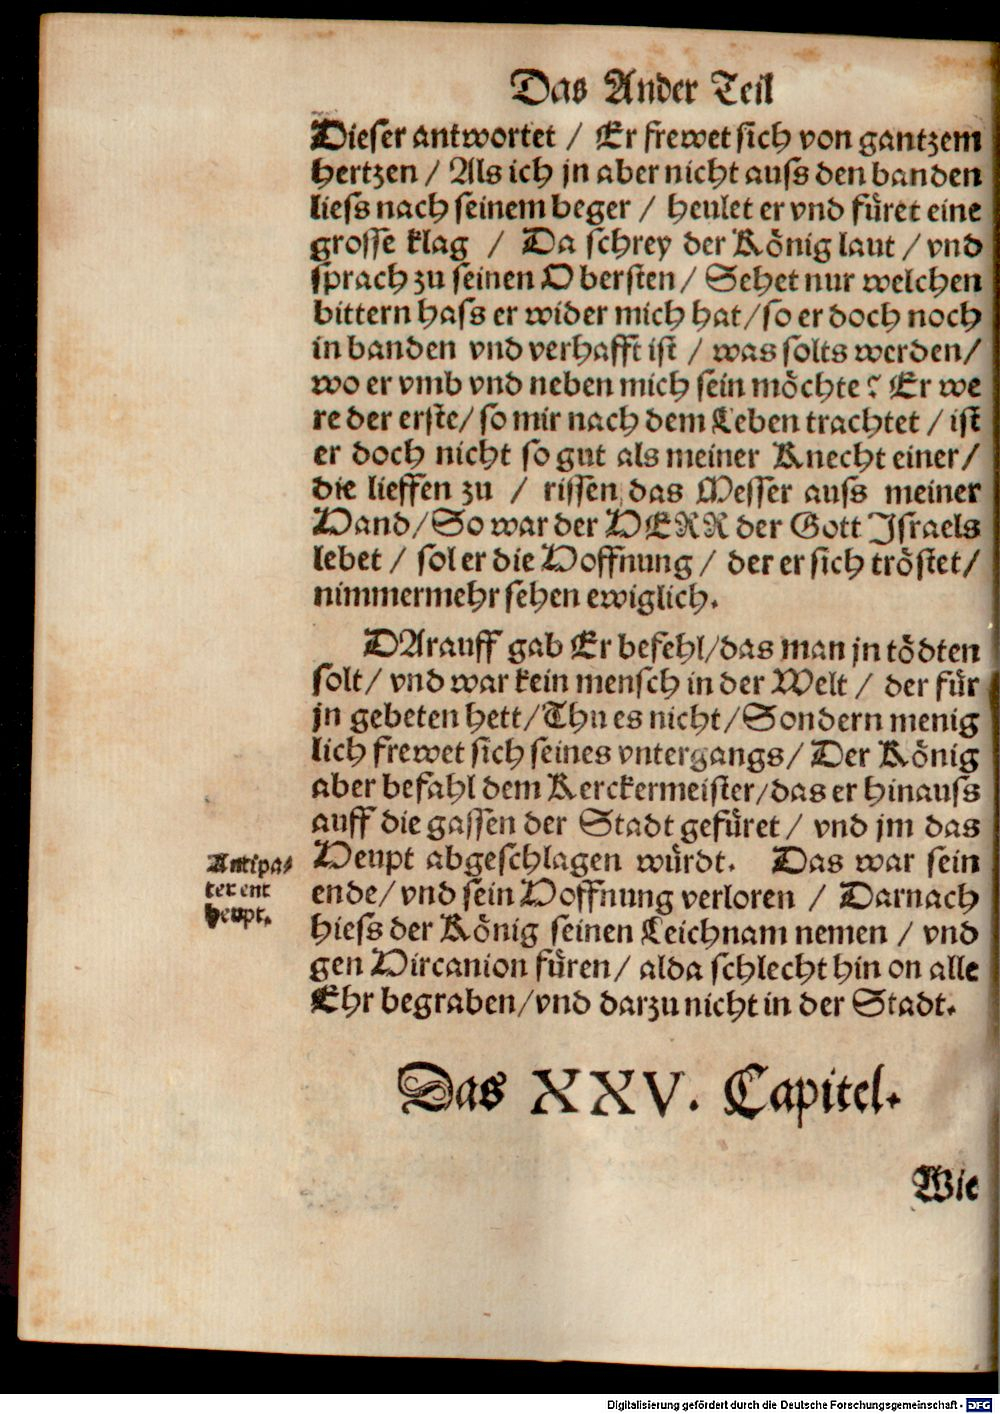 Das Ander Teil
Dieser antwortet / Er frewet sich von gantzem
hertzen / Als ich jn aber nicht auss den banden
liess nach seinem beger / heulet er vnd füret eine
grosse klag / Da schrey der König laut / vnd
sprach zu seinen Obersten / Sehet nur welchen
bittern hass er wider mich hat / so er doch noch
in banden vnd verhafft ist / was solts werden /
wo er vmb vnd neben mich sein möchte? Er we
re der erste / so mir nach dem Leben trachtet / ist
er doch nicht so gut als meiner Knecht einer /
die lieffen zu / rissen das Messer auss meiner
Hand / So war der HERR der Gott Israels
lebet / sol er die Hoffnung / der er sich tröstet /
nimmermehr sehen ewiglich.
DArauff gab Er befehl / das man jn tödten
solt / vnd war kein mensch in der Welt / der für
jn gebeten hett / Thu es nicht / Sondern menig
lich frewet sich seines vntergangs / Der König
aber befahl dem Kerckermeister / das er hinauss
auff die gassen der Stadt gefüret / vnd jm das
Antipa⸗
ter ent
heupt.
Heupt abgeschlagen würdt. Das war sein
ende / vnd sein Hoffnung verloren / Darnach
hiess der König seinen Leichnam nemen / vnd
gen Hircanion füren / alda schlecht hin on alle
Ehr begraben / vnd darzu nicht in der Stadt.
Das XXV. Capitel.
Wie
Digitalisierung gefördert durch die Deutsche Forschungsgemeinschaft - DFG